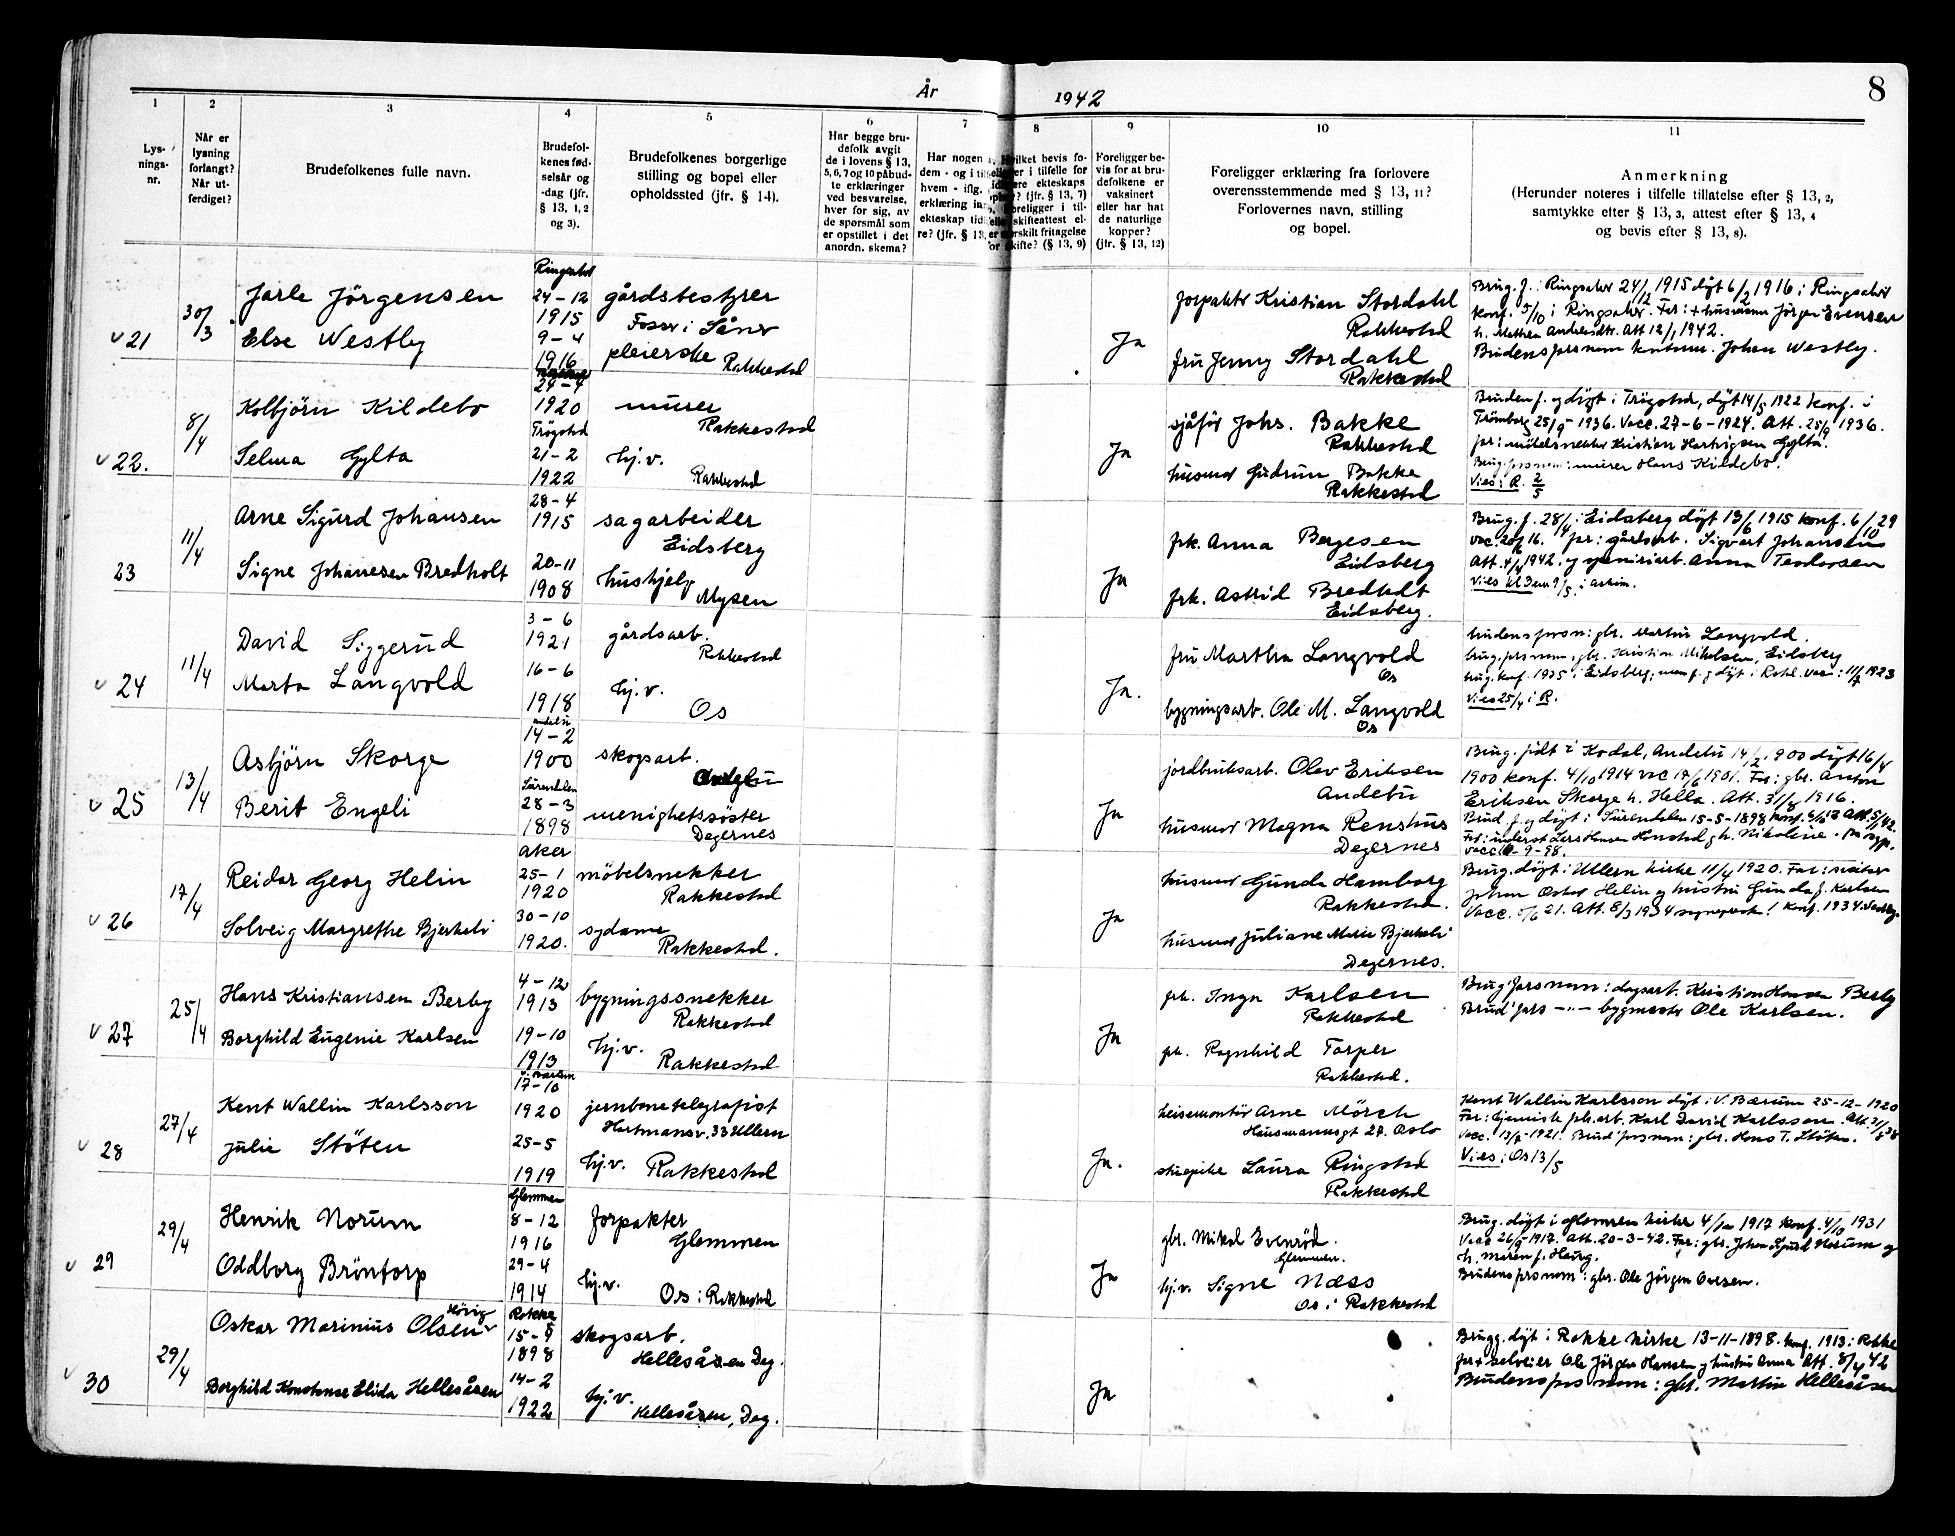 År 1942
8
1 2 3 4 5 6 7 8 9 10 11
Lys-
nings-
nr.
Når er
lysning
forlangt?
Når ut-
ferdiget?
Brudefolkenes fulle navn.
Brudefol-
kenes fød-
selsår og
-dag (jfr.
§ 13, 1, 2
og 3).
Brudefolkenes borgerlige
stilling og bopel eller
opholdssted (jfr. § 14).
Har begge bru-
defolk avgit
de i lovens § 13,
5, 6, 7 og 10 påbud-
te erklæringer
ved besvarelse,
hver for sig, av
de spørsmål som
er opstillet i det
anordn. skema?
Har nogen
dem - og i
hvem - iflg.
erklæring
ekteskap
re? (jfr. § 13,
bevis fo-
i tilfelle for
ekteskaps
(jfr. § 13, 7)
Foreligger i til-
skifteattest el-
fritagelse
skifte? (§ 13, 9)
Foreligger be-
vis for at bru-
defolkene er
vaksinert
eller har hat
de naturlige
kopper?
(jfr. § 13, 12)
Foreligger erklæring fra forlovere
overensstemmende med § 13, 11?
Forlovernes navn, stilling
og bopel.
Anmerkning
(Herunder noteres i tilfelle tillatelse efter § 13, 2,
samtykke efter § 13, 3, attest efter § 13, 4
og bevis efter § 13, 8).
v 21
30/3
Jarle Jörgensen
Else Westby
Ringsaker
24-12
1915
9-4
1916
gårdsbestyrer
Foss i Såner
pleierske
Rakkestad
Ja
forpakter Kristian Stordahl
Rakkestad
fru Jenny Stordahl
Rakkestad
Brug. f. i Ringsaker 24/12 1915 døpt 6/2 1916 i Ringsaker
konf. 5/10 i Ringsaker. Far: + husmann Jörgen Evensen
h. Mathea Andreasdtr. Att 12/1 1942.
Brudens farsnavn Johan Westby.
v 22.
8/4
Kolbjörn Kildebo
Selma Gylta
24-4
1920
Trögstad
21-2
1922
murer
Rakkestad
hj.v.
Rakkestad
Ja
sjåför Johs. Bakke
Rakkestad
husmor Gudrun Bakke
Rakkestad
Bruden f. og döpt i Trögstad, döpt 14/5 1922 konf. i
Trömborg 25/9 1936. Vacc. 27-6-1924. Att. 25/9 1936.
far: möbelsnekker Kristian Hartvigsen Gylta.
Brug. farsnavn: murer Hans Kildebo.
Vies: R. 2/5
23
11/4
Arne Sigurd Johansen
Signe Johannesen Bredholt
28-4
1915
20-11
1908
sagarbeider
Eidsberg
hushjelp
Mysen
Ja
frk. Anna Borgesen
Eidsberg
frk. Astrid Bredholt
Eidsberg.
Brug. f. 28/4 i Eidsberg döpt 13/6 1915 konf. 6/10 29
far: gårdsarb. Sigvart Johansen
Att. 4/4 1942. og Anna Teodorsen
v 24
11/4
David Siggerud
Marta Langvold
3-6
1921
16-6
1918
gårdsarb.
Rakkestad
hj.v.
Os
Ja.
fru Martha Langvold
Os
bygningsarb. Ole M. Langvold
Os
brudens farsn: gbr. Martin Langvold.
brug. farsnavn, gbr. Kristian Mikelsen, Eidsberg
brug. konf. 1935 i Eidsberg; men f. og döpt i Rakk. vacc: 11/7 1923
Vies 25/4 i R.
v 25
13/4
Asbjörn Skorge
Berit Engeli
Andebu
14-2
1900
Surendalen
28-3
1898
skogsarb.
Andebu
menighetssöster
Degernes
Ja
jordbruksarb. Olav Eriksen
Andebu
husmor Magna Renshus
Degernes
Brug. födt i Kodal, Andebu 14/2 1900 döpt 16/4
1900 konf. 4/10 1914 vac 17/6 1901. Far: gbr. Anton
Eriksen Skorge h. Hella. Att. 31/8 1916.
Brud f. og döpt i Surendalen 15-5-1898
v 26
17/4
Reidar Georg Helin
Solveig Margrethe Bjerkeli
Aker
25-1
1920
30-10
1920.
möbelsnekker
Rakkestad
sydame
Rakkestad.
Ja
husmor Gunda Hamborg
Rakkestad.
husmor Juliane Marie Bjerkeli
Degernes.
Brug. döpt i Ullern kirke 11/4 1920. Far:
Johan Oskar Helin og hustru Gunda f. Karlsen
Vacc. 5/6 21. Att. 8/3 1934 konf. 1934.
v 27
25/4
Hans Kristiansen Berby
Borghild Eugenie Karlsen
4-12
1913
19-10
1913
bygningssnekker
Rakkestad
hj.v.
Rakkestad
Ja
frk. Inga Karlsen
Rakkestad
frk. Ragnhild Torper
Rakkestad.
Brug farsnavn: dagsarb. Kristian Hansen Berby
Brud fars -"- bygmester Ole Karlsen.
v 28
27/4
Kent Wallin Karlsson
Julie Stöten
V. Bærum
17-10
1920
25-5
1919
jernbanetelegrafist
Hartmansv. 33 Ullern
hj.v. Rakkestad
Ja.
heisemontör Arne Mörch
Hausmannsgt 27. Oslo
Laura Ringstad
Rakkestad
Kent Wallin Karlsson döpt i V. Bærum 25-12-1920
Far: Karl David Karlsson.
1921. Brud' farsnavn: gbr. Hans T. Stöten.
Vies: Os 13/5
v 29
29/4
Henrik Norum
Oddborg Bröntorp
Glemmen
8-12
1916
29-4
1914
Forpakter
Glemmen
hj.v.
Os i Rakkestad
Ja
gbr. Mikal Evenröd.
Glemmen.
hj.v. Signe Næss
Os i Rakkestad
Brug. döpt i Glemmen kirke 1917 konf. 4/10 1931
Vacc 26/9-1917. Att. 20-3-42. Far: gbr. Johan Sigurd Norum og
h. Maren f. Haug.
Brudens farsnavn: gbr. Ole Jörgen Ovesen.
v 30
29/4
Oskar Marinius Olsen Hövig
Borghild Konstanse Elida Hellesåsen
Rokke
15-9
1898
14-2
1922
skogsarb.
Hellesåsen Deg.
hj.v.
Hellesåsen, Deg.
Ja
Brugg. döpt i Rokke kirke 13-11-1898. konf. 1913 i Rokke
far + selveier Ole Jörgen Hansen og hustru Anna Att. 8/4 42
Brudens fars navn: gbr. Martin Hellesåsen